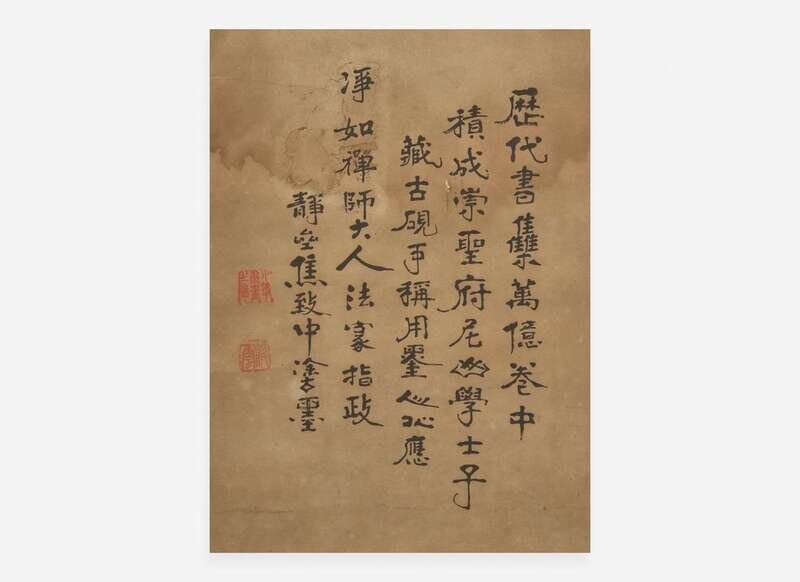 歷代書集萬億卷中
積成崇聖府尼山學士子
藏古硯 稱用 心 應
淨如禪師大人法家指政
靜 焦致中塗墨